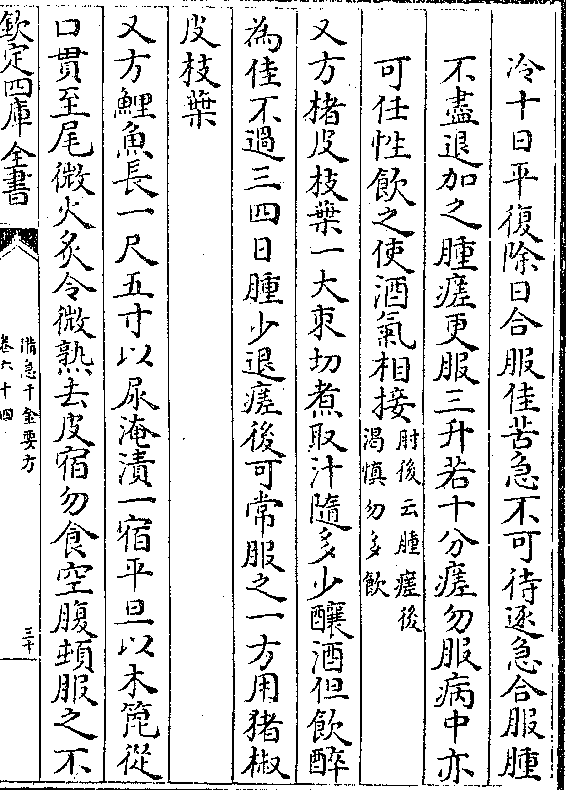 冷十日平復除日合服佳苦急不可待逐急合服腫
不盡退加之腫瘥更服三升若十分瘥勿服病中亦
可任性飲之使酒氣相接肘後云腫瘥後
渴慎勿多飲
又方楮皮枝葉一大束切煮取汁隨多少釀酒但飲醉
為佳不過三四日腫少退瘥後可常服之一方用猪椒
皮枝葉
又方鯉魚長一尺五寸以尿淹漬一宿平旦以木篦從
口貫至尾微火炙令微熟去皮宿勿食空腹頓服之不
欽定四庫全書
備急千金要方
卷六十四
三十